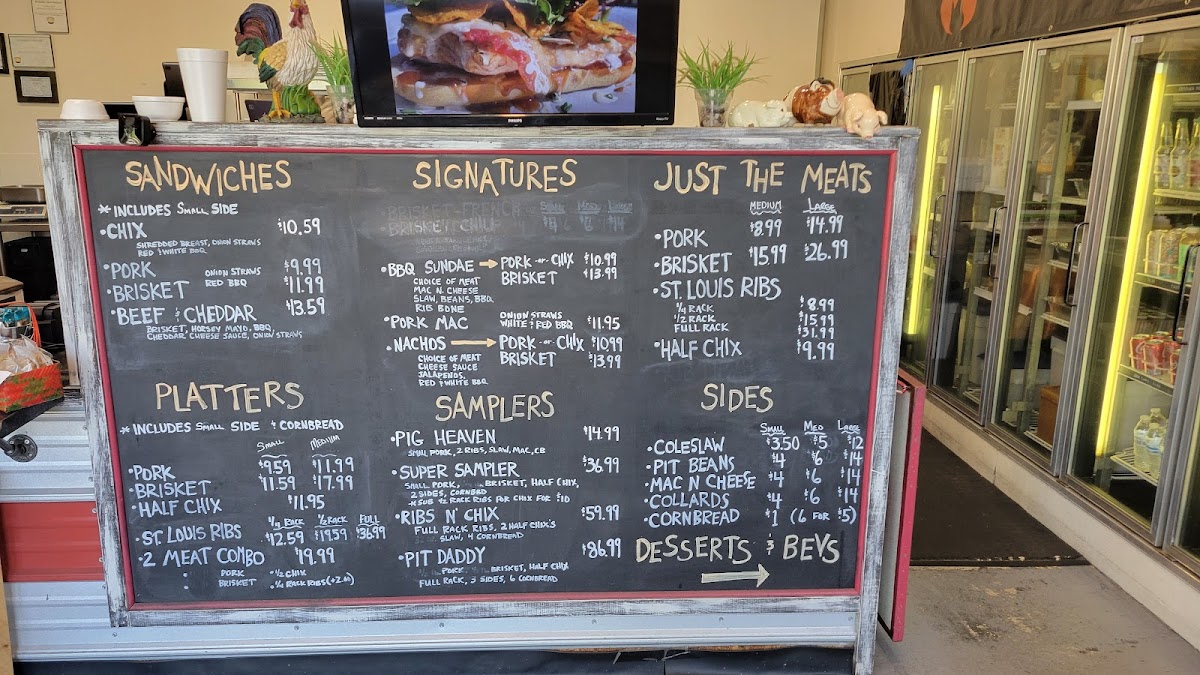 PHILIPS
SANDWICHES
* INCLUDES SMALL SIDE
•CHIX $10.59
SHREDDED BREAST, ONION STRAWS
RED & WHITE BBQ
•PORK ONION STRAWS $9.99
•BRISKET RED BBQ $11.99
•BEEF & CHEDDAR $13.59
BRISKET, HORSEY MAYO, BBQ,
CHEDDAR CHEESE SAUCE, ONION STRAWS
PLATTERS
* INCLUDES SMALL SIDE & CORNBREAD
SMALL MEDIUM
•PORK $9.59 $11.99
•BRISKET $11.59 $17.99
•HALF CHIX $11.95
1/4 RACK 1/2 RACK FULL
•ST. LOUIS RIBS $12.59 $19.59 $36.99
•2 MEAT COMBO $19.99
PORK • 1/2 CHIX
BRISKET • 1/4 RACK RIBS (+2.00)
SIGNATURES
BRISKET FRENCH
BRISKET CHILI $4 $6 $14
•BBQ SUNDAE → PORK -OR- CHIX $10.99
BRISKET $13.99
CHOICE OF MEAT
MAC N CHEESE
SLAW, BEANS, BBQ
RIB BONE
•PORK MAC ONION STRAWS
WHITE & RED BBQ $11.95
•NACHOS → PORK -OR- CHIX $10.99
BRISKET $13.99
CHOICE OF MEAT
CHEESE SAUCE
JALAPENOS
RED & WHITE BBQ
SAMPLERS
•PIG HEAVEN $14.99
SMALL PORK, 2 RIBS, SLAW, MAC, CB
•SUPER SAMPLER $36.99
SMALL PORK, BRISKET, HALF CHIX,
2 SIDES, CORNBREAD
* SUB 1/2 RACK RIBS FOR CHIX FOR $10
•RIBS N' CHIX $59.99
FULL RACK RIBS, 2 HALF CHIX'S
SLAW, 4 CORNBREAD
•PIT DADDY $86.99
PORK, BRISKET, HALF CHIX
FULL RACK, 3 SIDES, 6 CORNBREAD
JUST THE MEATS
MEDIUM LARGE
•PORK $8.99 $14.99
•BRISKET $15.99 $26.99
•ST. LOUIS RIBS
1/4 RACK $8.99
1/2 RACK $15.99
FULL RACK $31.99
•HALF CHIX $9.99
SIDES
SMALL MED LARGE
•COLESLAW $3.50 $5 $12
•PIT BEANS $4 $6 $14
•MAC N CHEESE $4 $6 $14
•COLLARDS $4 $6 $14
•CORNBREAD $1 (6 FOR $5)
DESSERTS & BEVS